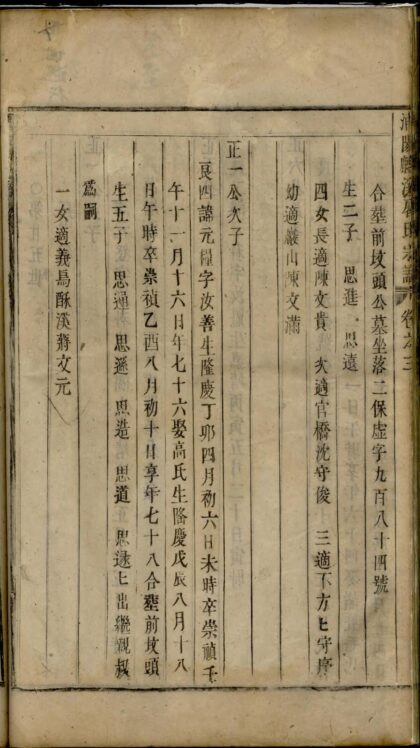 卷之三
合塟前坟頭公墓坐落二保虛字九百八十四號
生二子 思進 思遠
四女長適陳文貴 次適官橋沈守俊 三適下方上守序
幼適嚴山陳文滿
正一公次子
艮四諱元程字汝善生隆慶丁卯四月初六日未時卒崇禎壬
午十一月十六日年七十六娶高氏生隆慶戊辰八月十八
日午時卒崇禎乙酉八月初十日享年七十八合塟前坟頭
生五子 思連 思遜 思造 思道 思逑上出繼親叔
為嗣
一女適義烏酥溪蔣文元